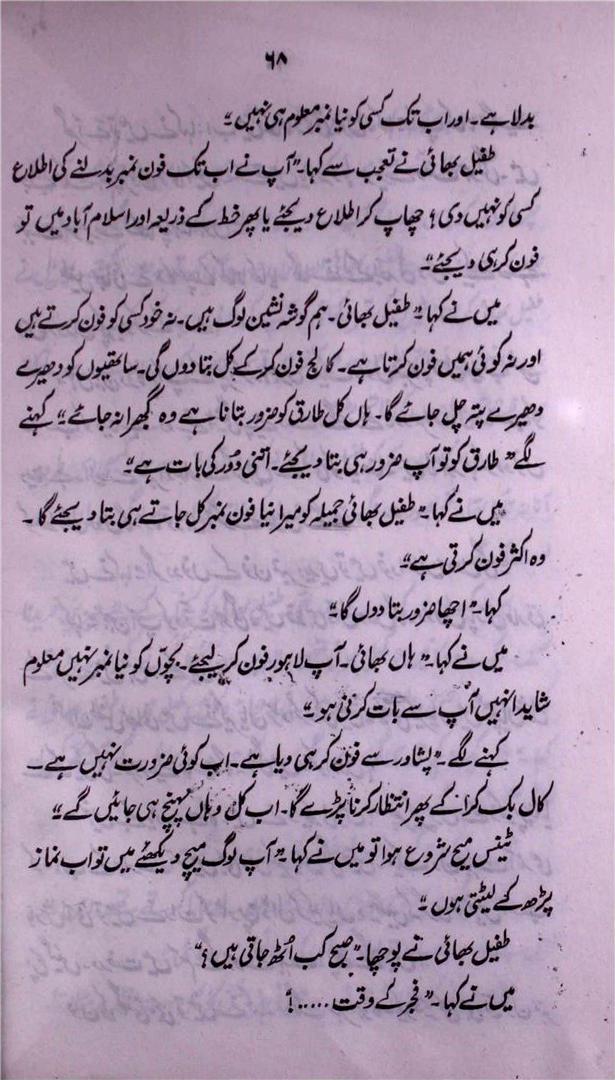 ۶۸
بدلا ہے۔ اور اب تک کسی کو نیا نمبر معلوم ہی نہیں۔"
طفیل بھائی نے تعجب سے کہا۔ "آپ نے اب تک فون نمبر بدلنے کی اطلاع
کسی کو نہیں دی؟ چھاپ کر اطلاع دیجئے یا پھر خط کے ذریعہ اور اسلام آباد میں تو
فون کر ہی دیجئے"
میں نے کہا۔ "طفیل بھائی۔ ہم گوشہ نشین لوگ ہیں۔ نہ خود کسی کو فون کرتے ہیں
اور نہ کوئی ہمیں فون کرتا ہے۔ کالج فون کر کے کل بتا دوں گی۔ ساتھیوں کو دھیرے
دھیرے پتہ چل جائے گا۔ ہاں کل طارق کو ضرور بتانا ہے وہ گھبرا نہ جائے" کہنے
لگے "طارق کو تو آپ ضرور ہی بتا دیجئے۔ اتنی دُور کی بات ہے"
میں نے کہا۔ "طفیل بھائی جمیلہ کو میرا نیا فون نمبر کل جاتے ہی بتا دیجئے گا۔
وہ اکثر فون کرتی ہے"
کہا۔ "اچھا ضرور بتا دوں گا"
میں نے کہا۔ "ہاں بھائی۔ آپ لاہور فون کر لیجئے۔ بچوّں کو نیا نمبر نہیں معلوم
شاید انہیں آپ سے بات کرنی ہو"
کہنے لگے۔ "پشاور سے فون کر ہی دیا ہے۔ اب کوئی ضرورت نہیں ہے۔
کال بک کرا کے پھر انتظار کرنا پڑے گا۔ اب کل وہاں پہنچ ہی جائیں گے"
ٹینس میچ شروع ہوا تو میں نے کہا۔ "آپ لوگ میچ دیکھئے میں تو اب نماز
پڑھ کے لیٹتی ہوں"
طفیل بھائی نے پوچھا۔ "صبح کب اُٹھ جاتی ہیں؟"
میں نے کہا۔ "فجر کے وقت .....!"